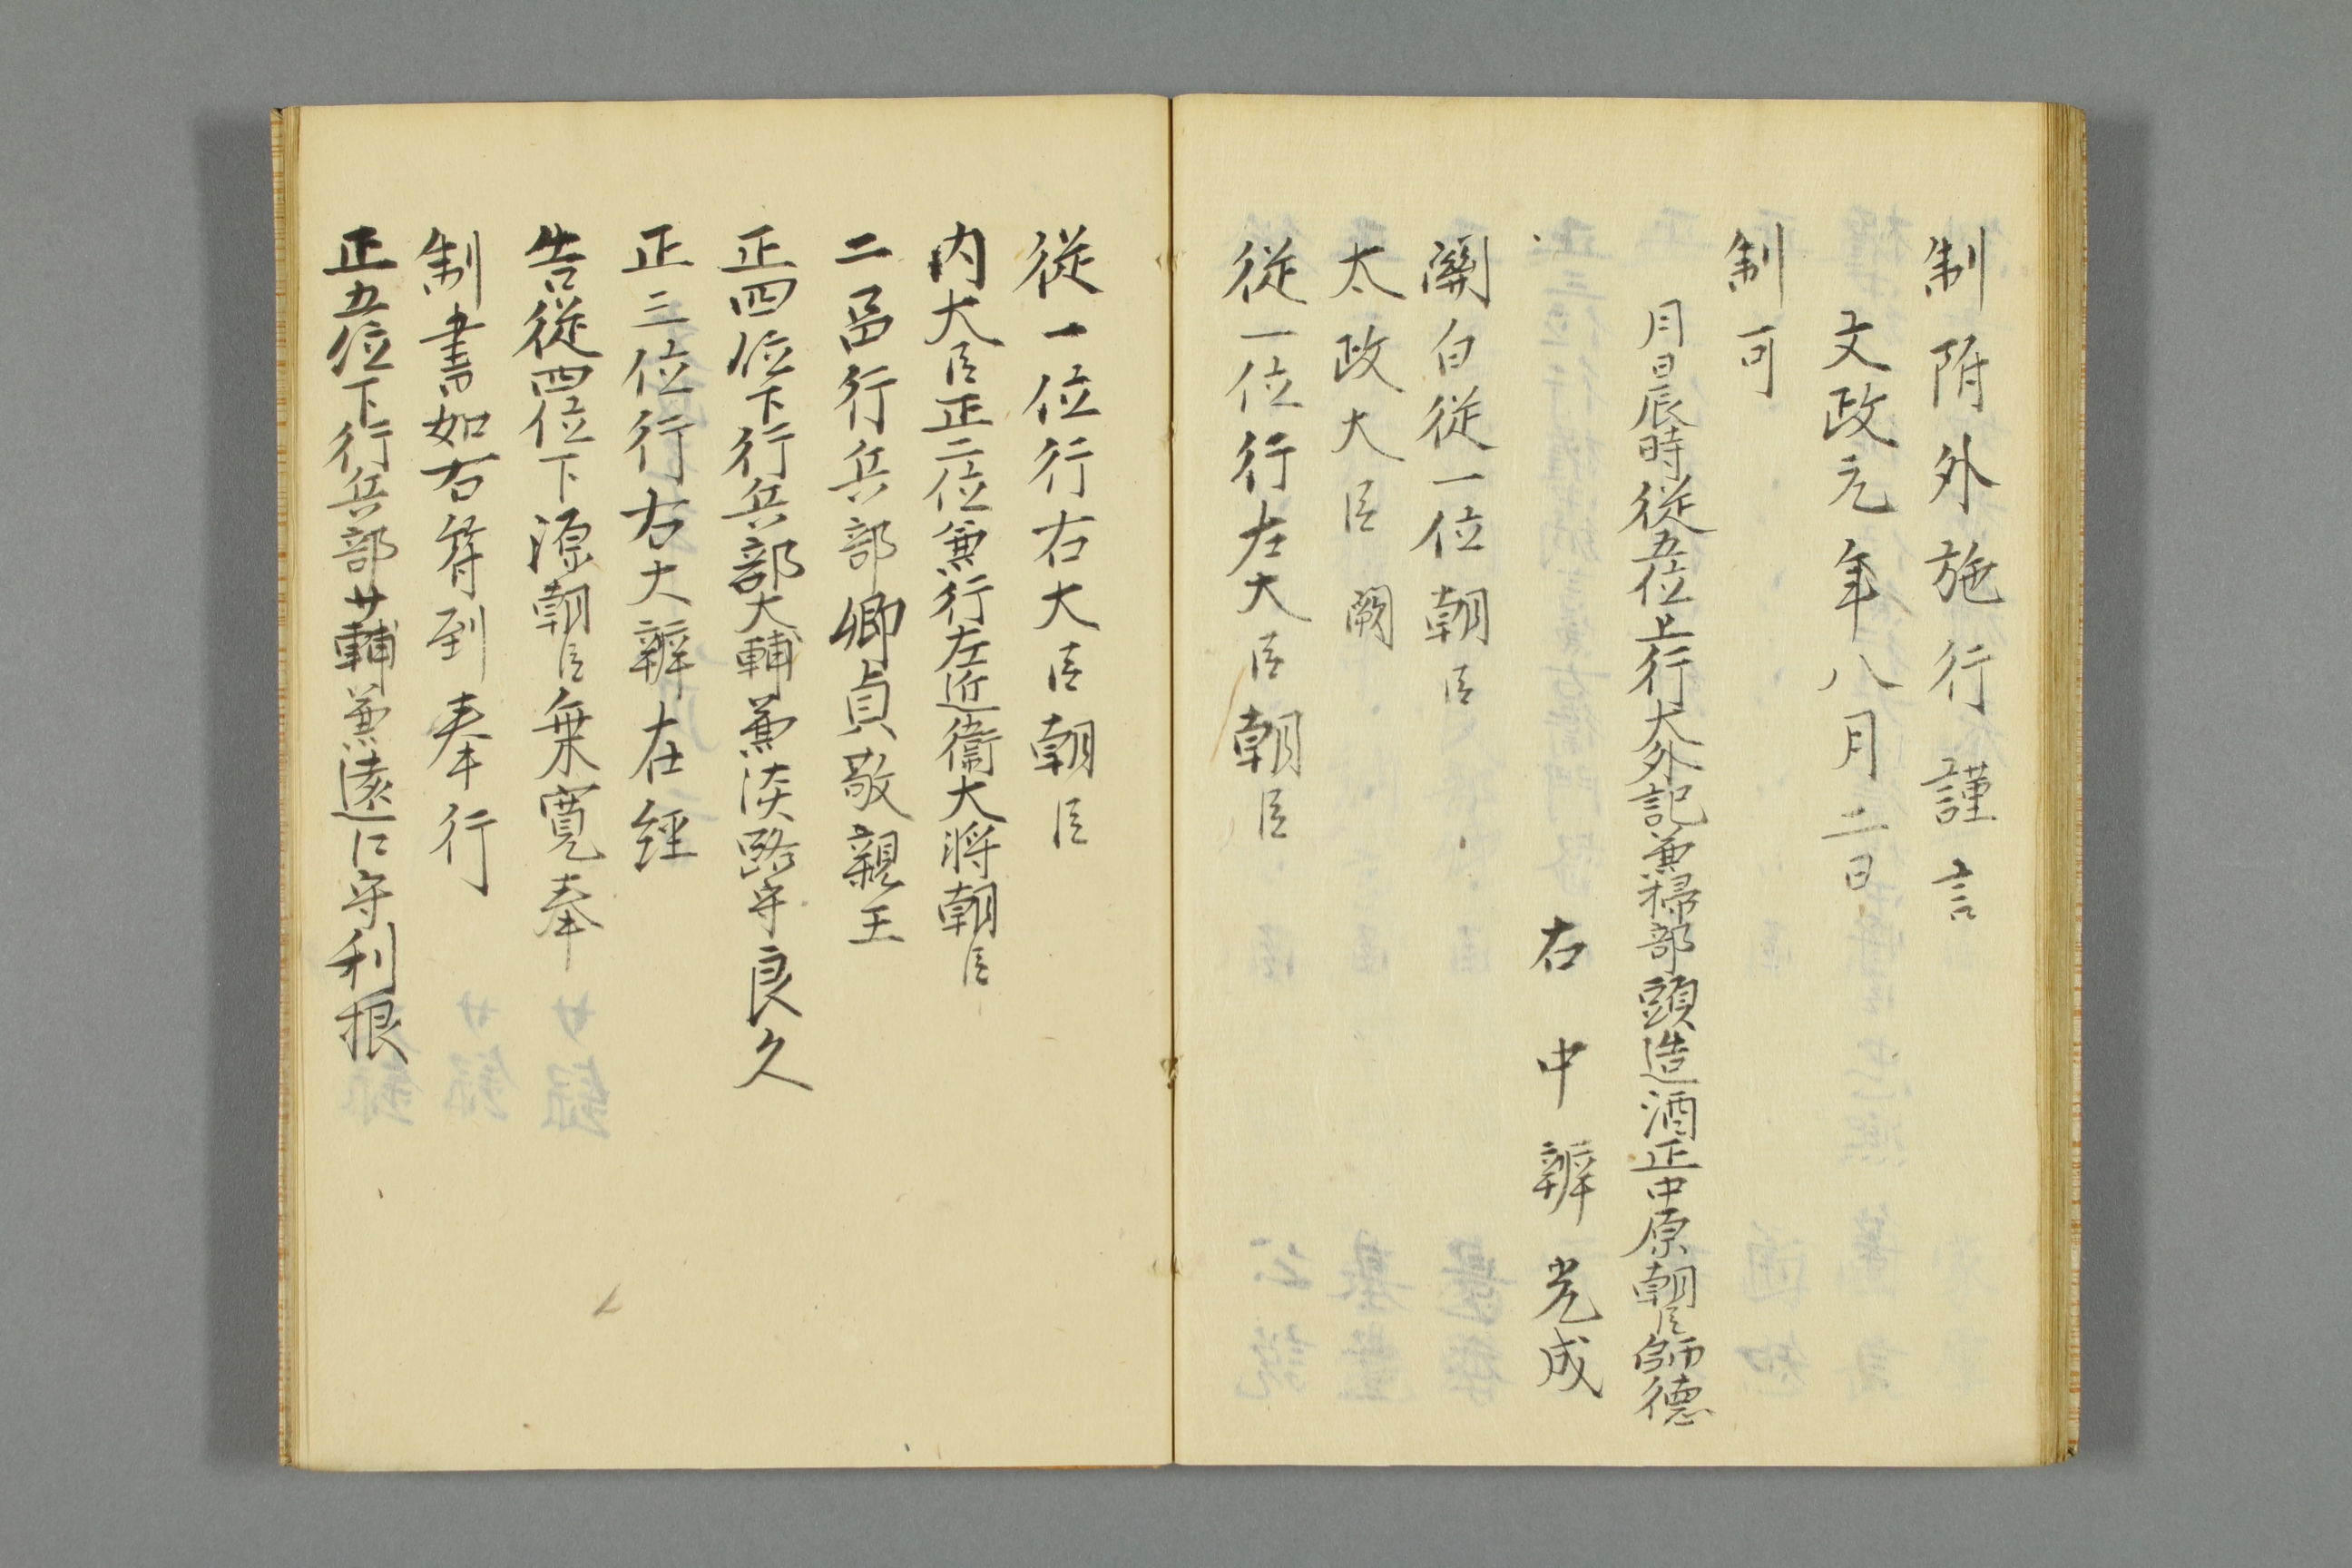 制附外施行謹言
文政元年八月二日
制可
月日辰時従五位上行大外記兼掃部頭造酒正中原朝臣師徳
右中辨光成
関白従一位朝臣
太政大臣闕
従一位行左大臣朝臣
従一位行右大臣朝臣
内大臣正二位兼行左近衛大将朝臣
二品行兵部卿貞敬親王
正四位下行兵部大輔兼淡路守良久
正三位行右大辨在経
告従四位下源朝臣乗寛奉
制書如右符到奉行
正五位下行兵部少輔兼遠江守利根